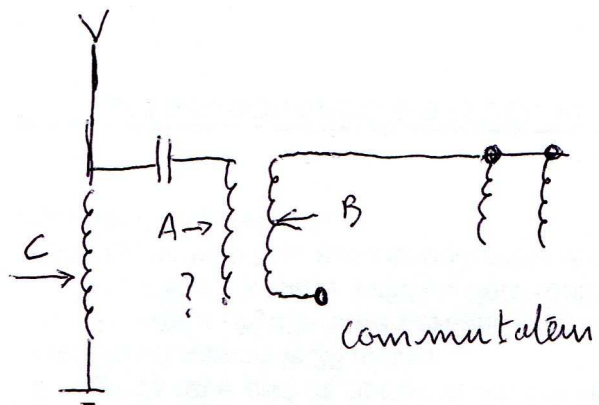 C
A
B
?
commutateur